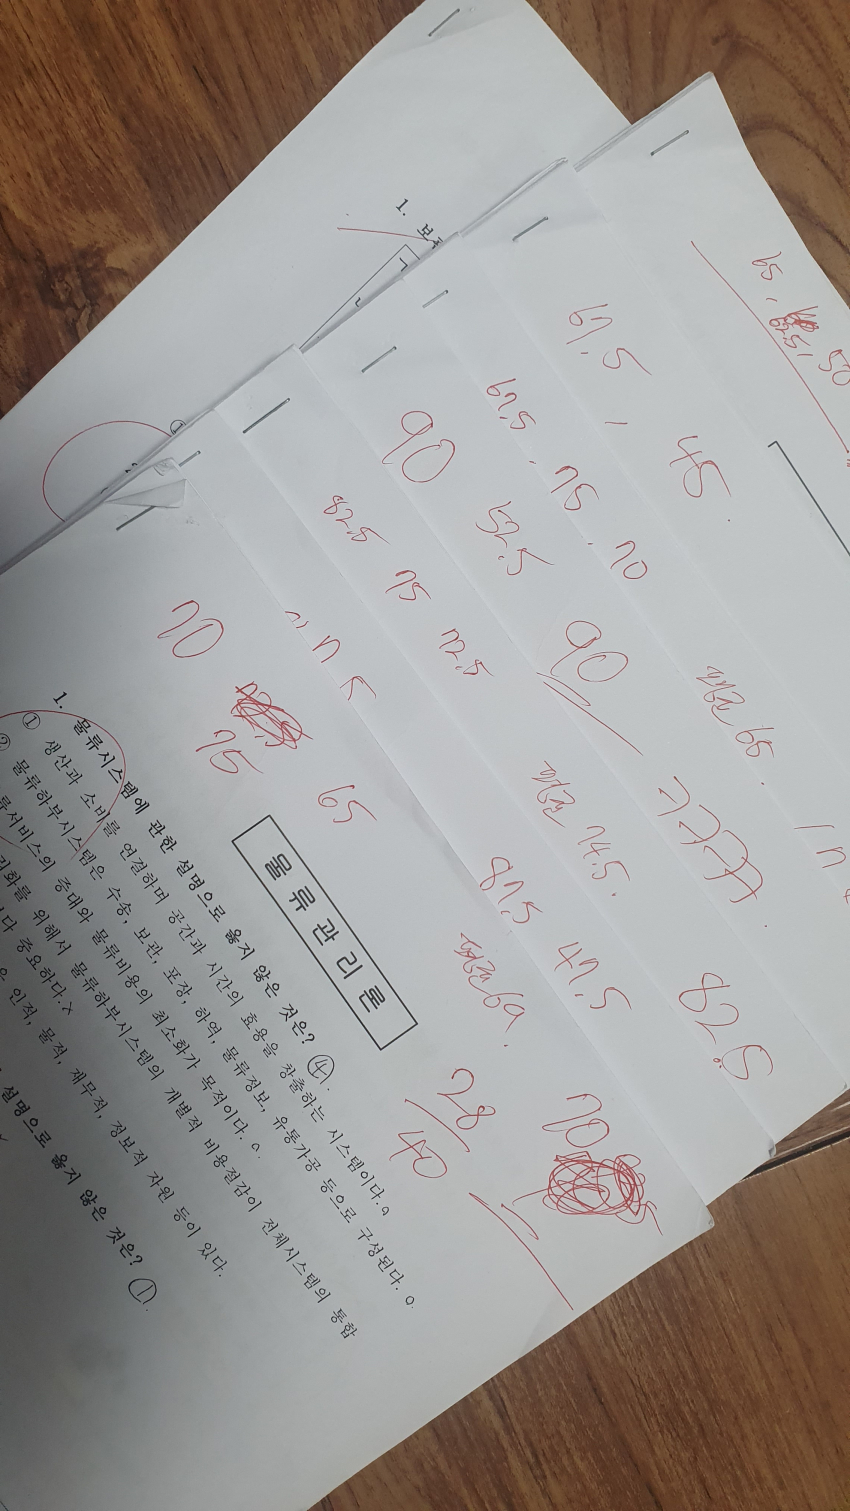 1.
65, 62.5, 50
67.5, 45.
67.5. 75. 70
평균 65.
90 52.5 90 ㅋㅋㅋㅋ. 82.5
82.5 75 72.5
평균 74.5.
77.5
87.5 47.5
평균 69.
70 75 65
28
40
70
물류관리론
1. 물류시스템에 관한 설명으로 옳지 않은 것은? ④.
① 생산과 소비를 연결하며 공간과 시간의 효용을 창출하는 시스템이다.
② 물류하부시스템은 수송, 보관, 포장, 하역, 물류정보, 유통가공 등으로 구성된다.
류서비스의 증대와 물류비용의 최소화가 목적이다.
화를 위해서 물류하부시스템의 개별적 비용절감이 전체시스템의 통합
다 중요하다.x
인적, 물적, 재무적, 정보적 자원 등이 있다.
설명으로 옳지 않은 것은? ①.